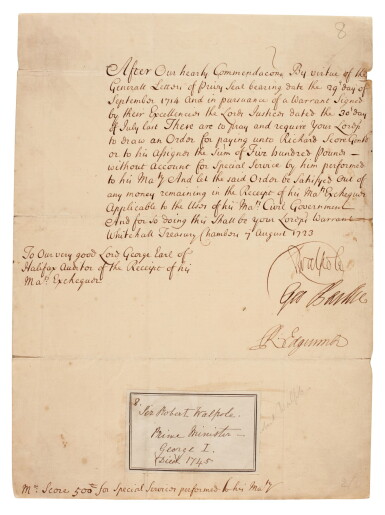 8
After Our hearty Commendacons By virtue of the
Generall Letters of Privy Seal bearing date the 29th day of
September 1714 And in pursuance of a Warrant Signed
by their Excellencies the Lords Justices dated the 30th day
of July last These are to pray and require your Lordp
to draw an Order for paying unto Richard Score Gent
or to his Assignes the Sum of Five hundred Pounds
without Account for Special Service by him performed
to his Maty And let the said Order be Satisfyed Out of
any money remaining in the Receipt of his Mats Exchequer
Applicable to the Uses of his Mats Civil Government
And for so doing this shall be your Lordps Warrant
Whitehall Treasury Chambers 7 August 1723
To Our very good Lord George Earl of
Halifax Auditor of the Receipt of his
Mats Exchequer
R Walpole
Geo Baillie
R Edgcumbe
8.
Sir Robert Walpole.
Prime Minister
George I.
Died 1745
Mr Score 500 for Special Services performed to his Maty